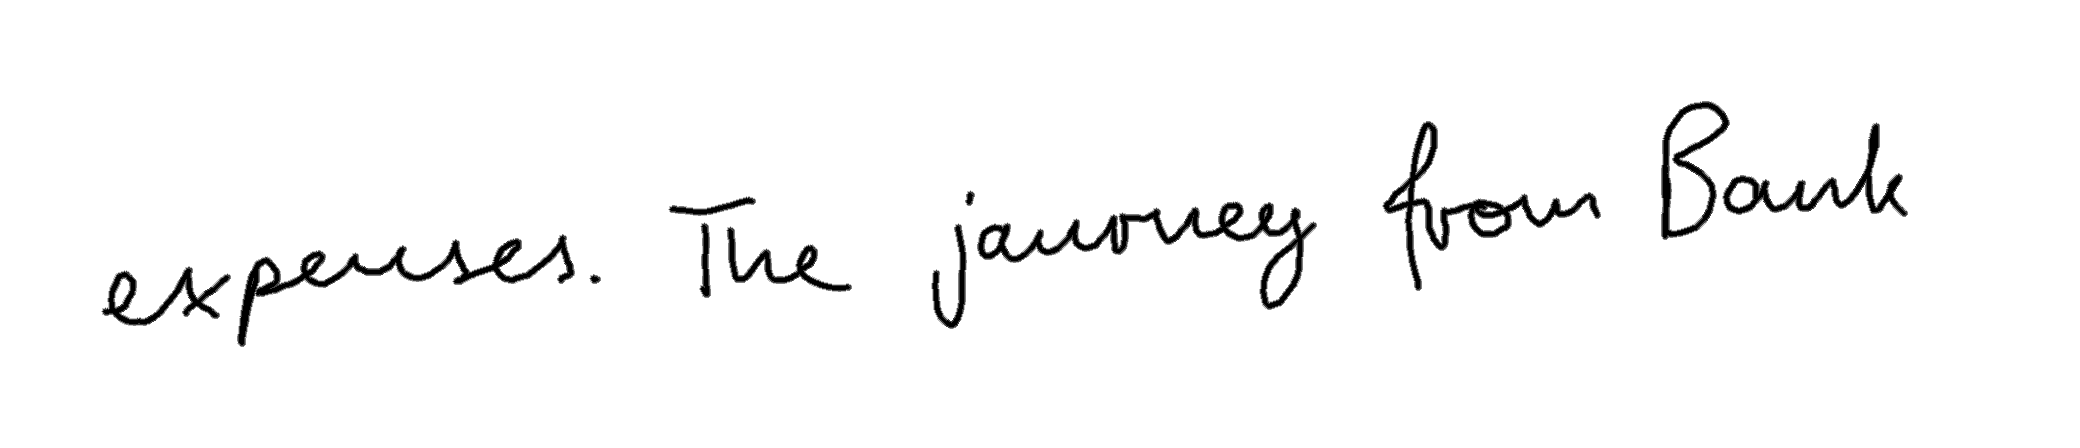 expenses. The journey from Bank